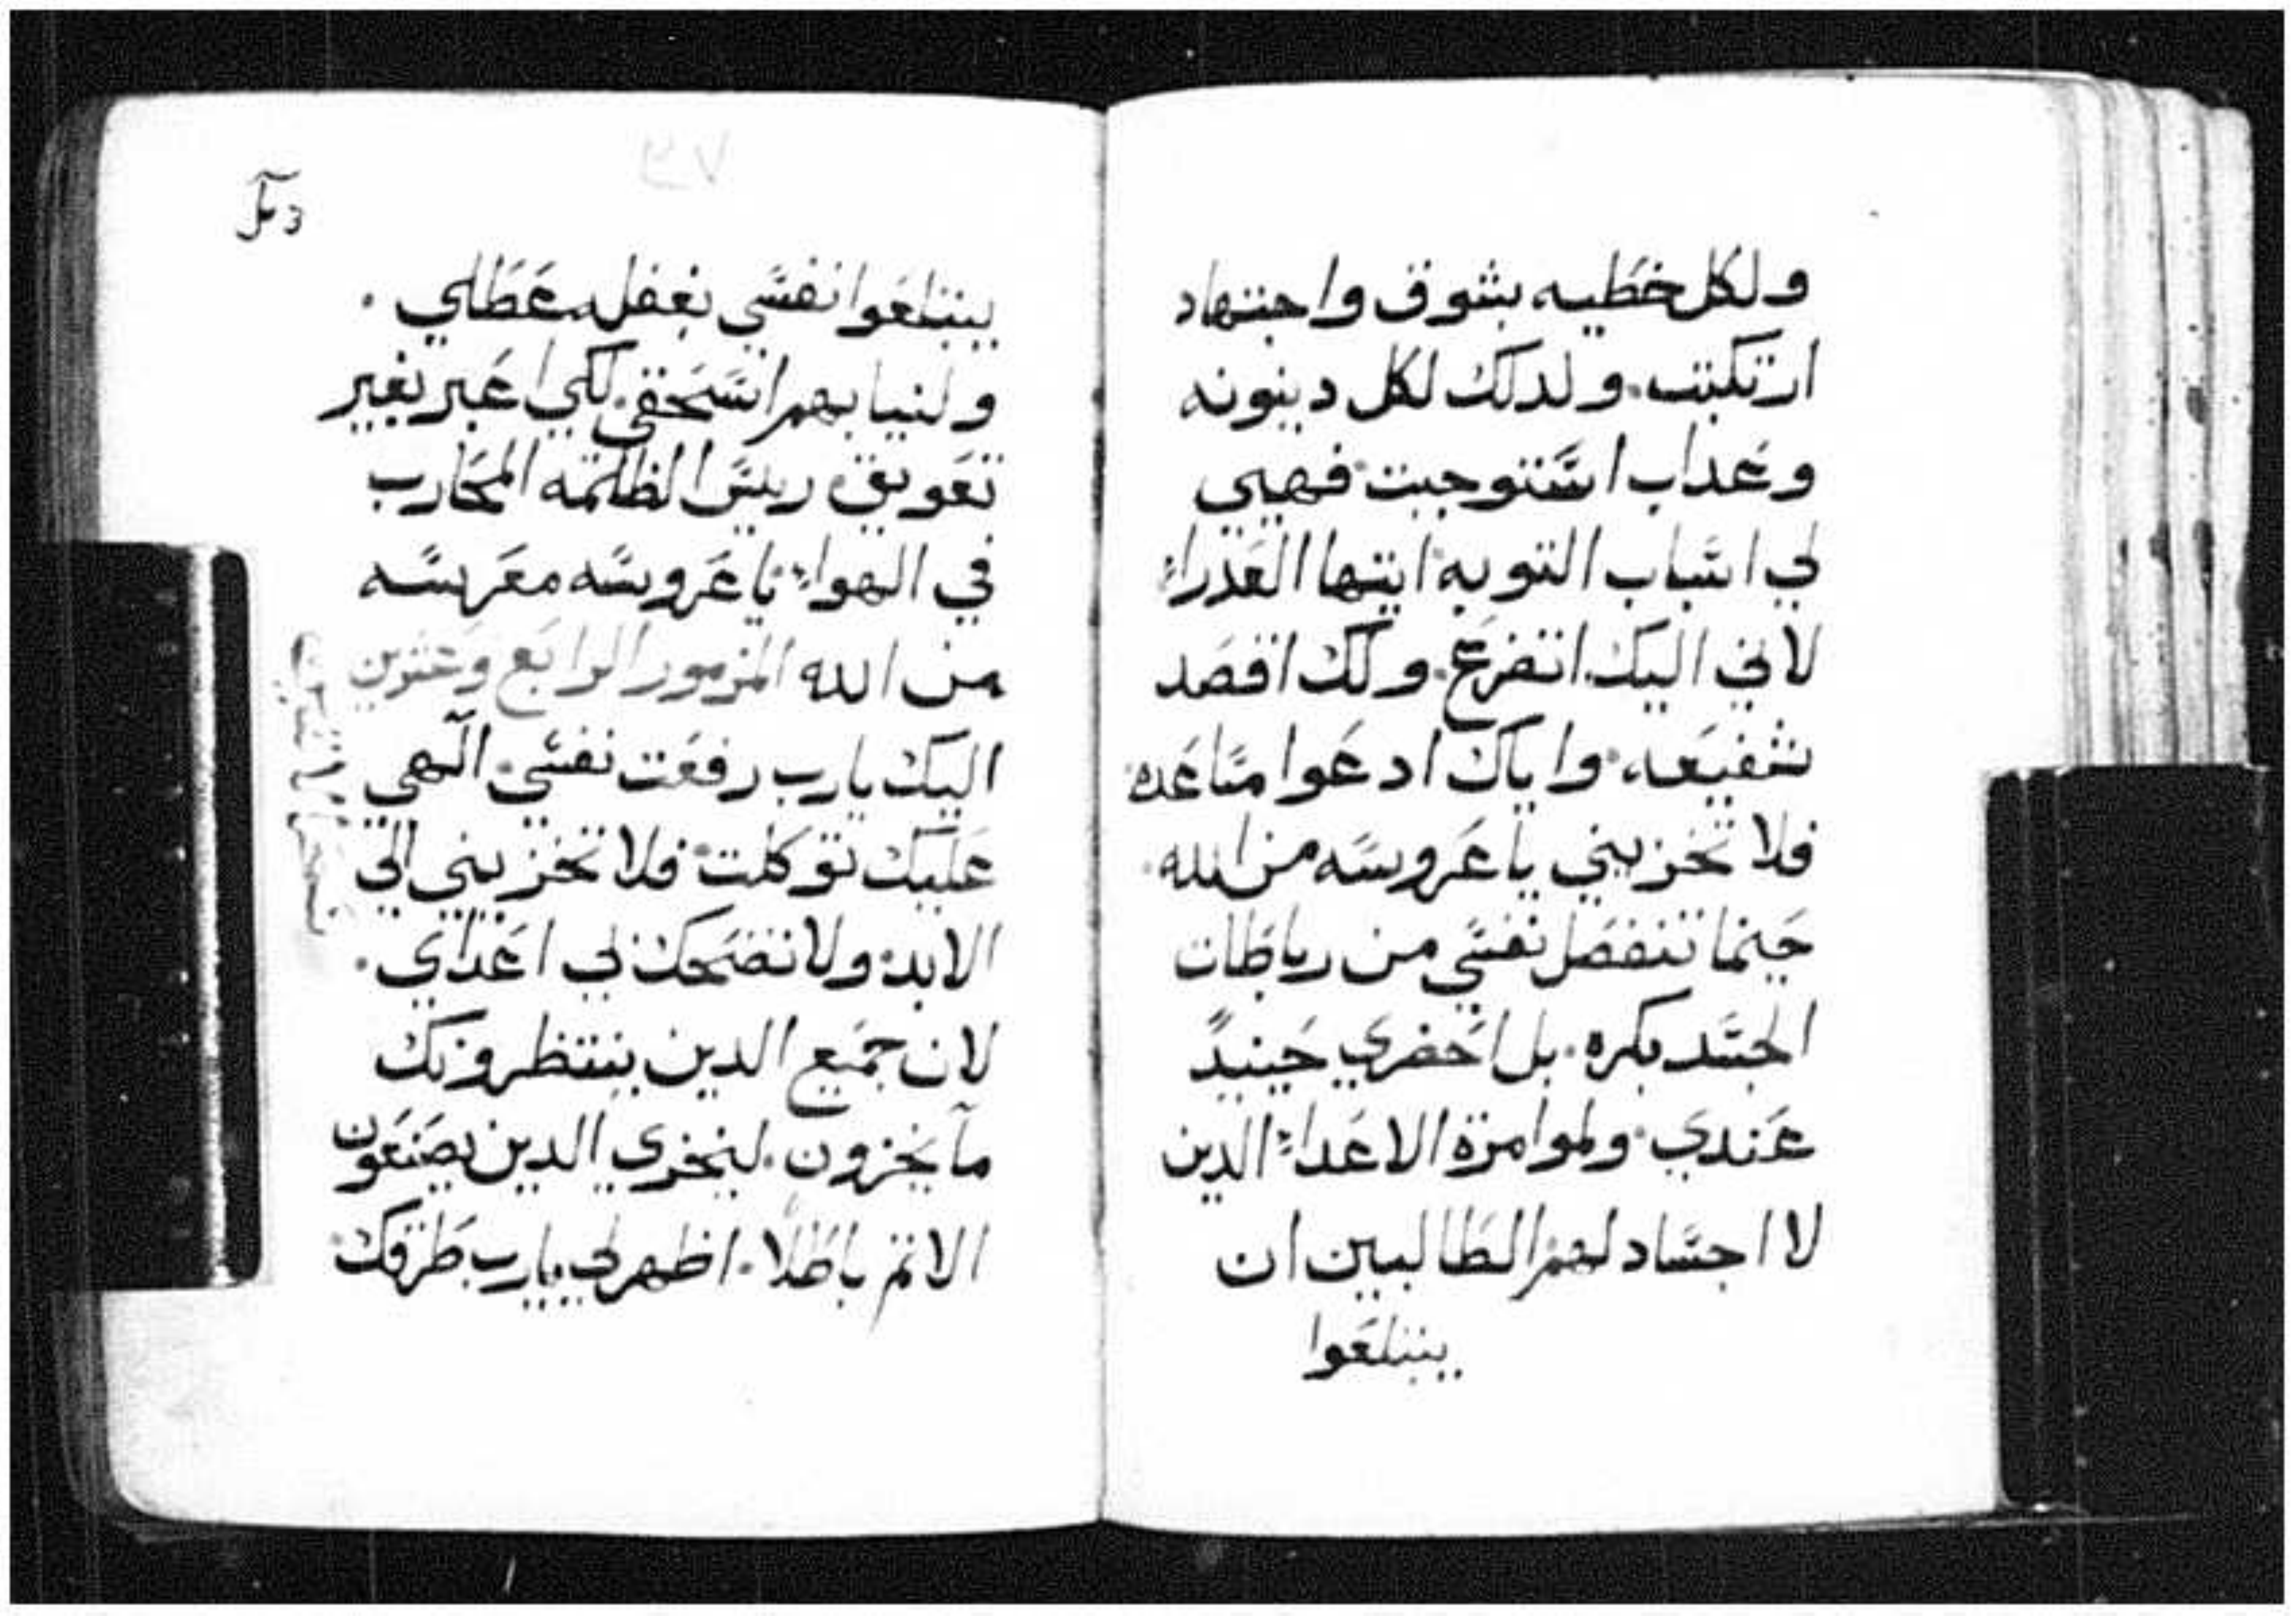 ولكل خطيه بشوق واجتهاد
ارتكبت. ولدلك لكل دينونه
وعداب استوجبت فهيي
لي اسباب التوبه ايتها العدراء
لاني اليك اتضرع. ولك اقصد
شفيعه، واياك ادعوا مساعده
فلا تخزيني يا عروسه من الله.
حينما تنفصل نفسي من رباطات
الجسد بكره. بل احضري حينيدً
عندي. ولموامرة الاعداء الدين
لا اجساد لهم الطالبين ان
يبتلعوا
يبتلعوا نفسي بغفله عظلي.
ولنيابهم اسحقي. لكي اعبر بغير
تعويق ريس الظلمه المحارب
في الهواء يا عروسه معريسه
من الله المزمور الرابع وعشرين
اليك يارب رفعت نفسي. الهي
عليك توكلت فلا تخزيني الي
الابد ولا تضحك لي اعداي.
لان جميع الدين ينتظرونك
ما يخزون. ليخزي الدين يصنعون
الاتم باطلا. اظهر لي يارب طرقك